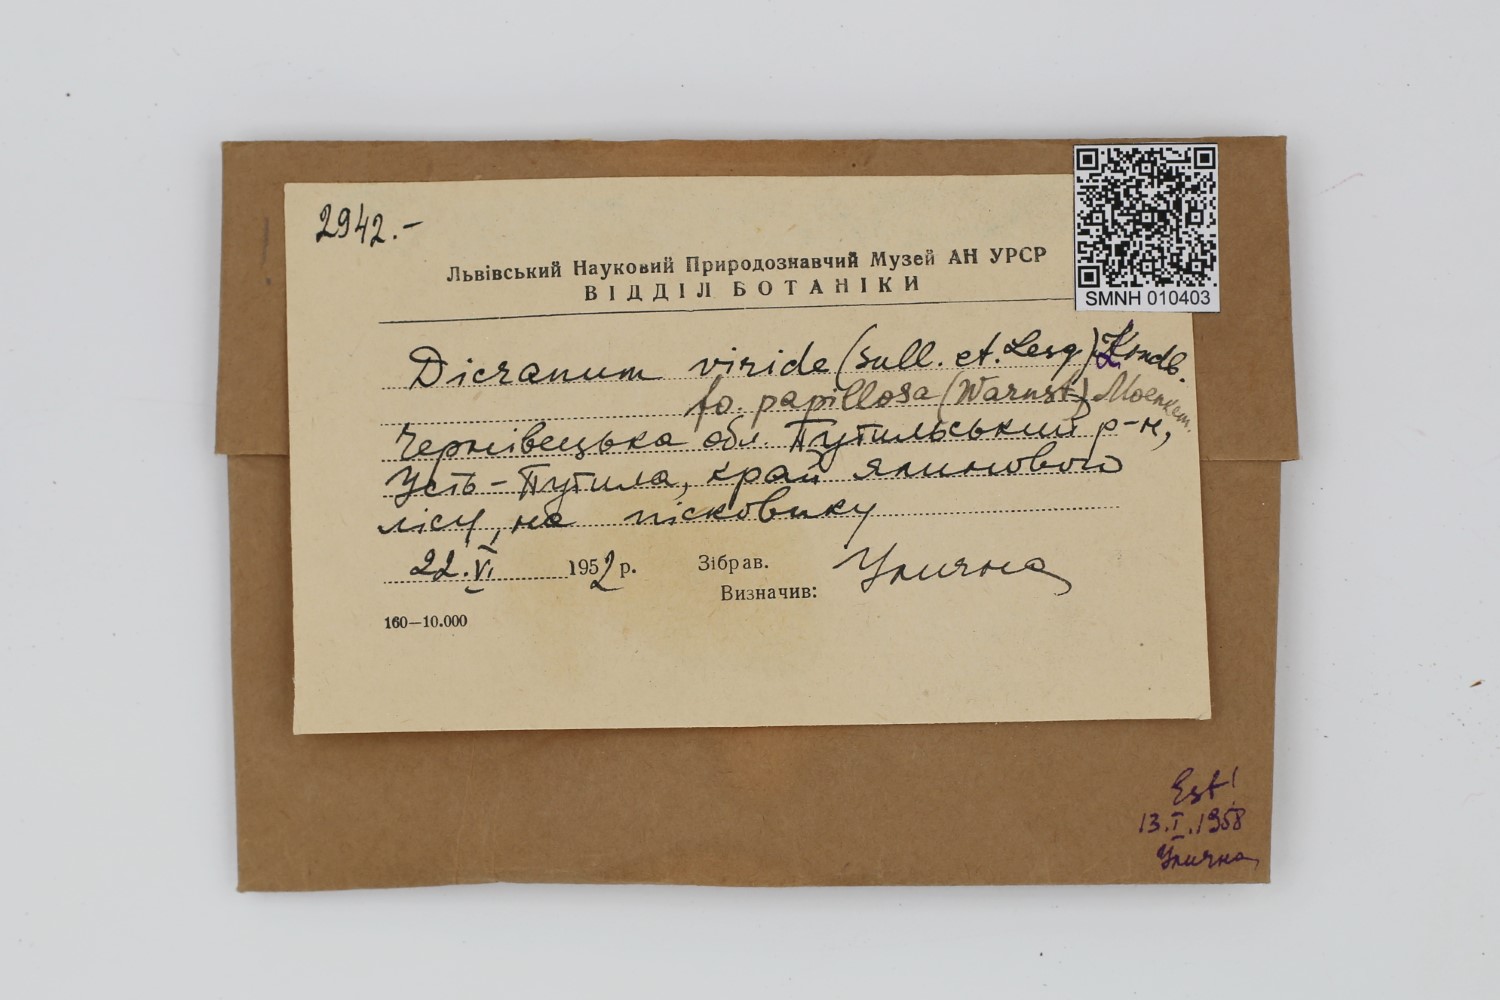 2942.-
SMNH 010403
Львівський Науковий Природознавчий Музей АН УРСР
ВІДДІЛ БОТАНІКИ
Dicranum viride (Sull. et. Lesq) Lindb.
fo. papillosa (Warnst.) Moenkem.
Чернівецька обл. Путильський р-н,
Усть-Путила, край ялинового
лісу, на пісковику
22.VI 1952 р. Зібрав. Улична
Визначив:
160—10.000
Est!
13.I.1958
Улична